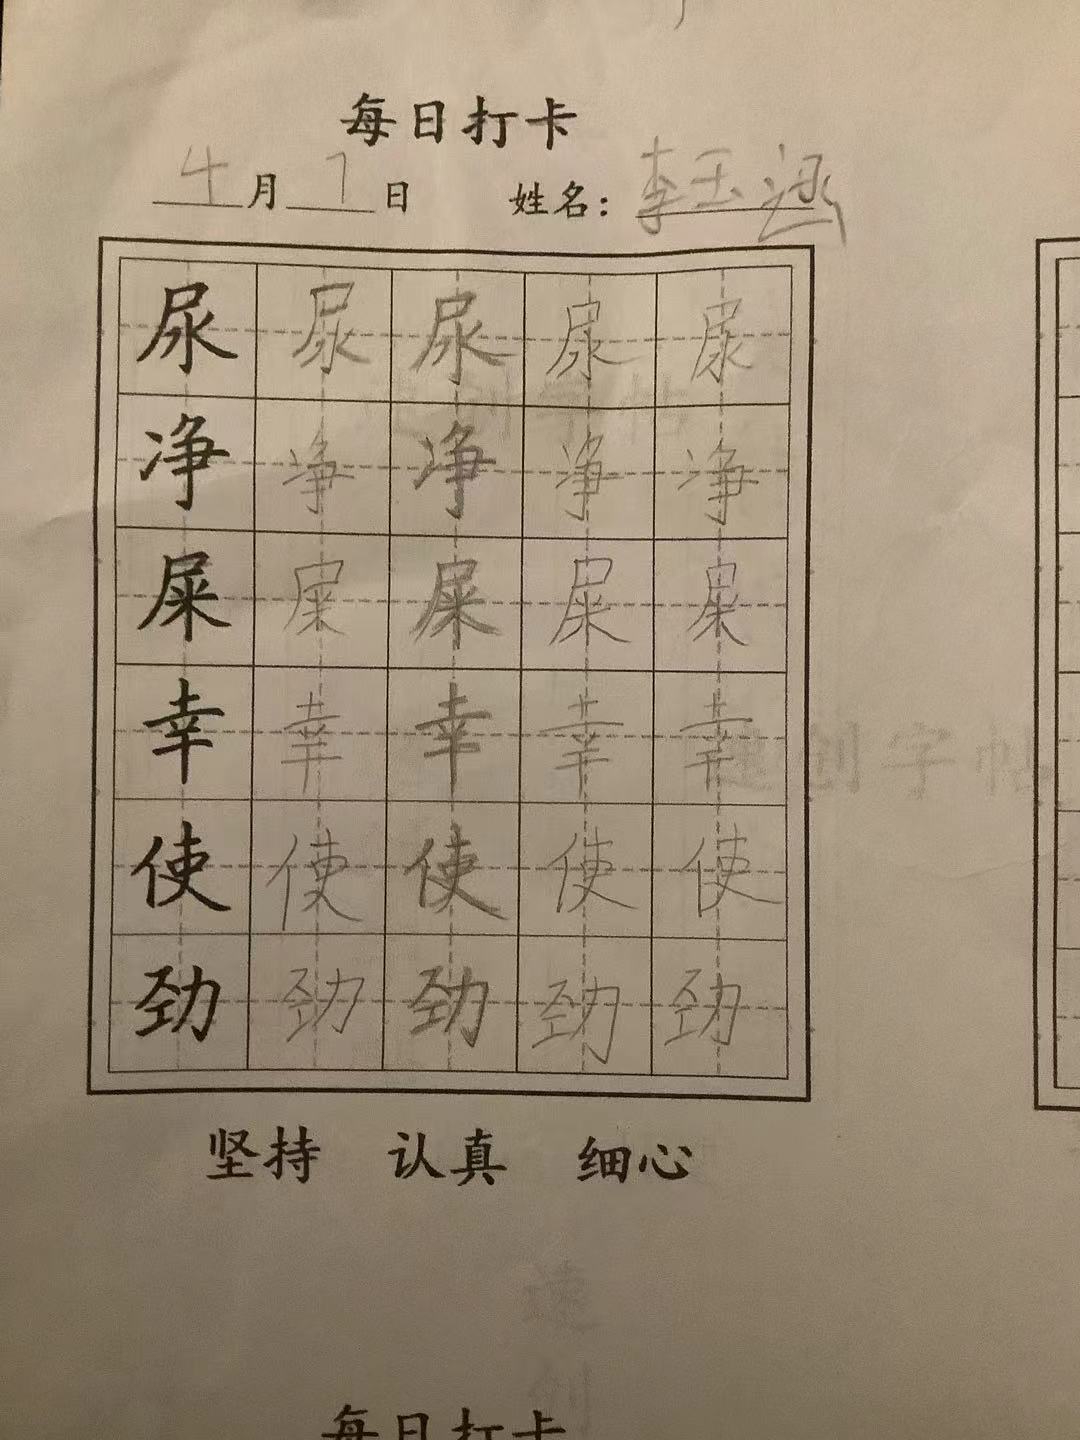 每日打卡
4月7日 姓名：李玉涵
尿尿尿尿尿
净净净净净
屎屎屎屎屎
幸幸幸幸幸
使使使使使
劲劲劲劲劲
速创字帖
速创字帖
坚持 认真 细心
速创
每日打卡